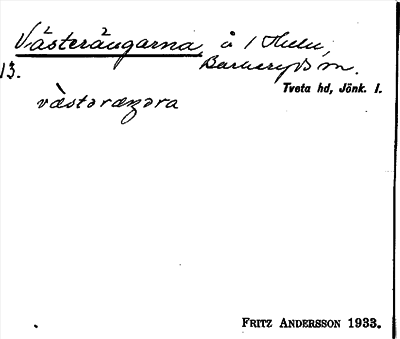 Västerängarna, å 1 Hulu,
13. Barkeryds sn.
Tveta hd, Jönk. l.
vàstəræŋəra
FRITZ ANDERSSON 1933.